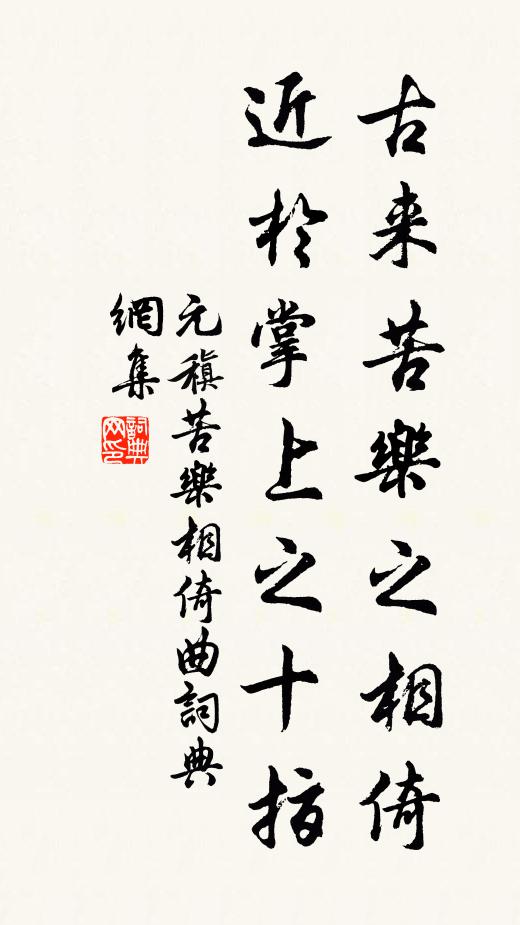 古来苦樂之相倚
近於掌上之十指
元稹苦樂相倚曲詞典
網集
詞典
网印